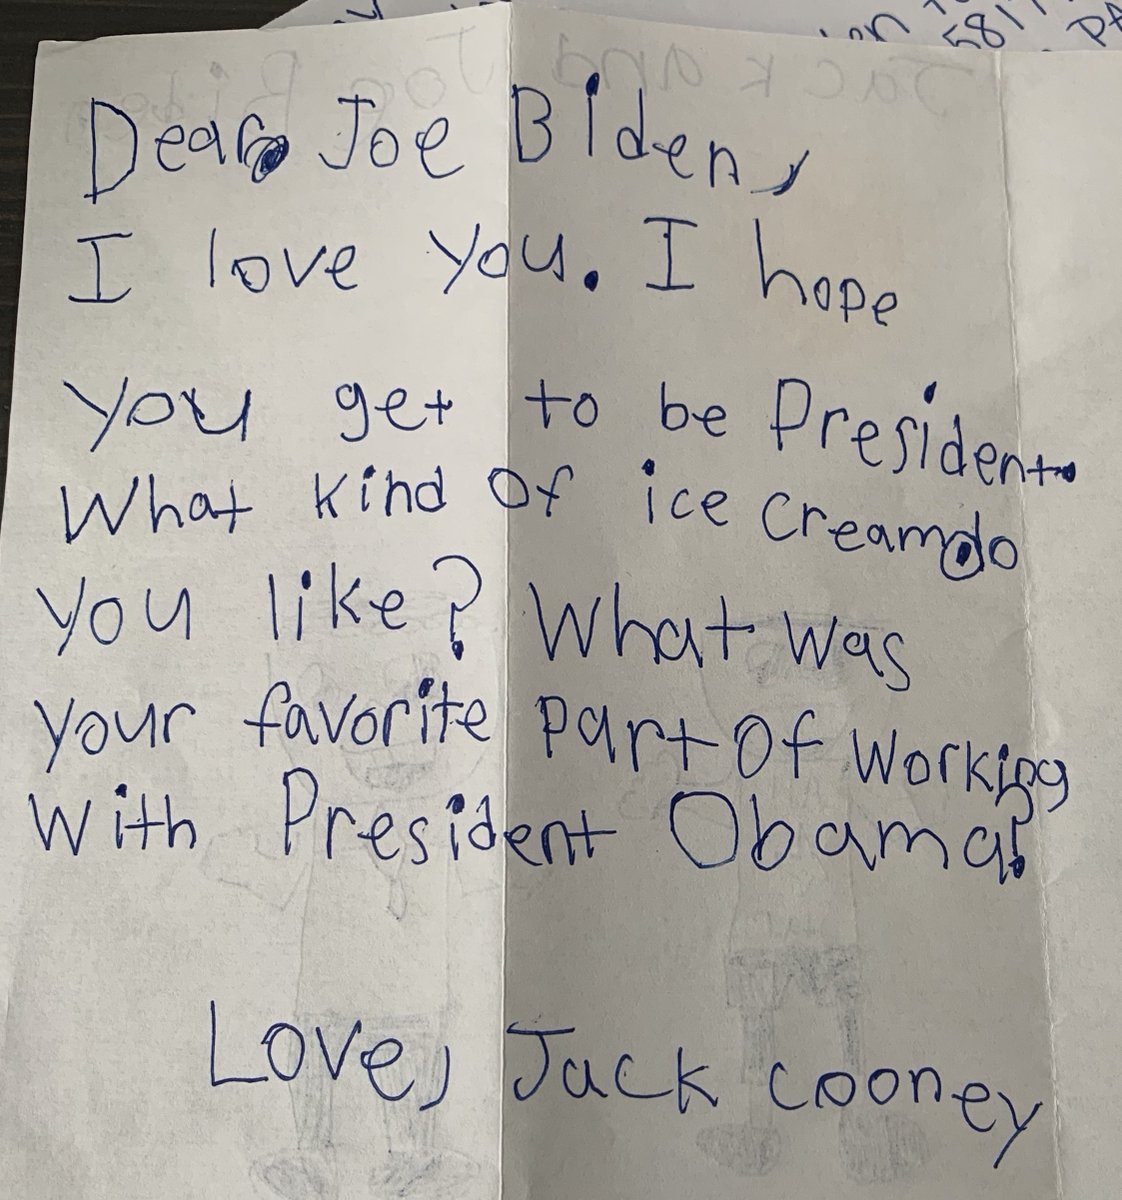 Dear Joe Biden,
I love you. I hope
you get to be President.
What kind Of ice cream do
you like? What was
your favorite part Of working
With President Obama?
Love, Jack cooney